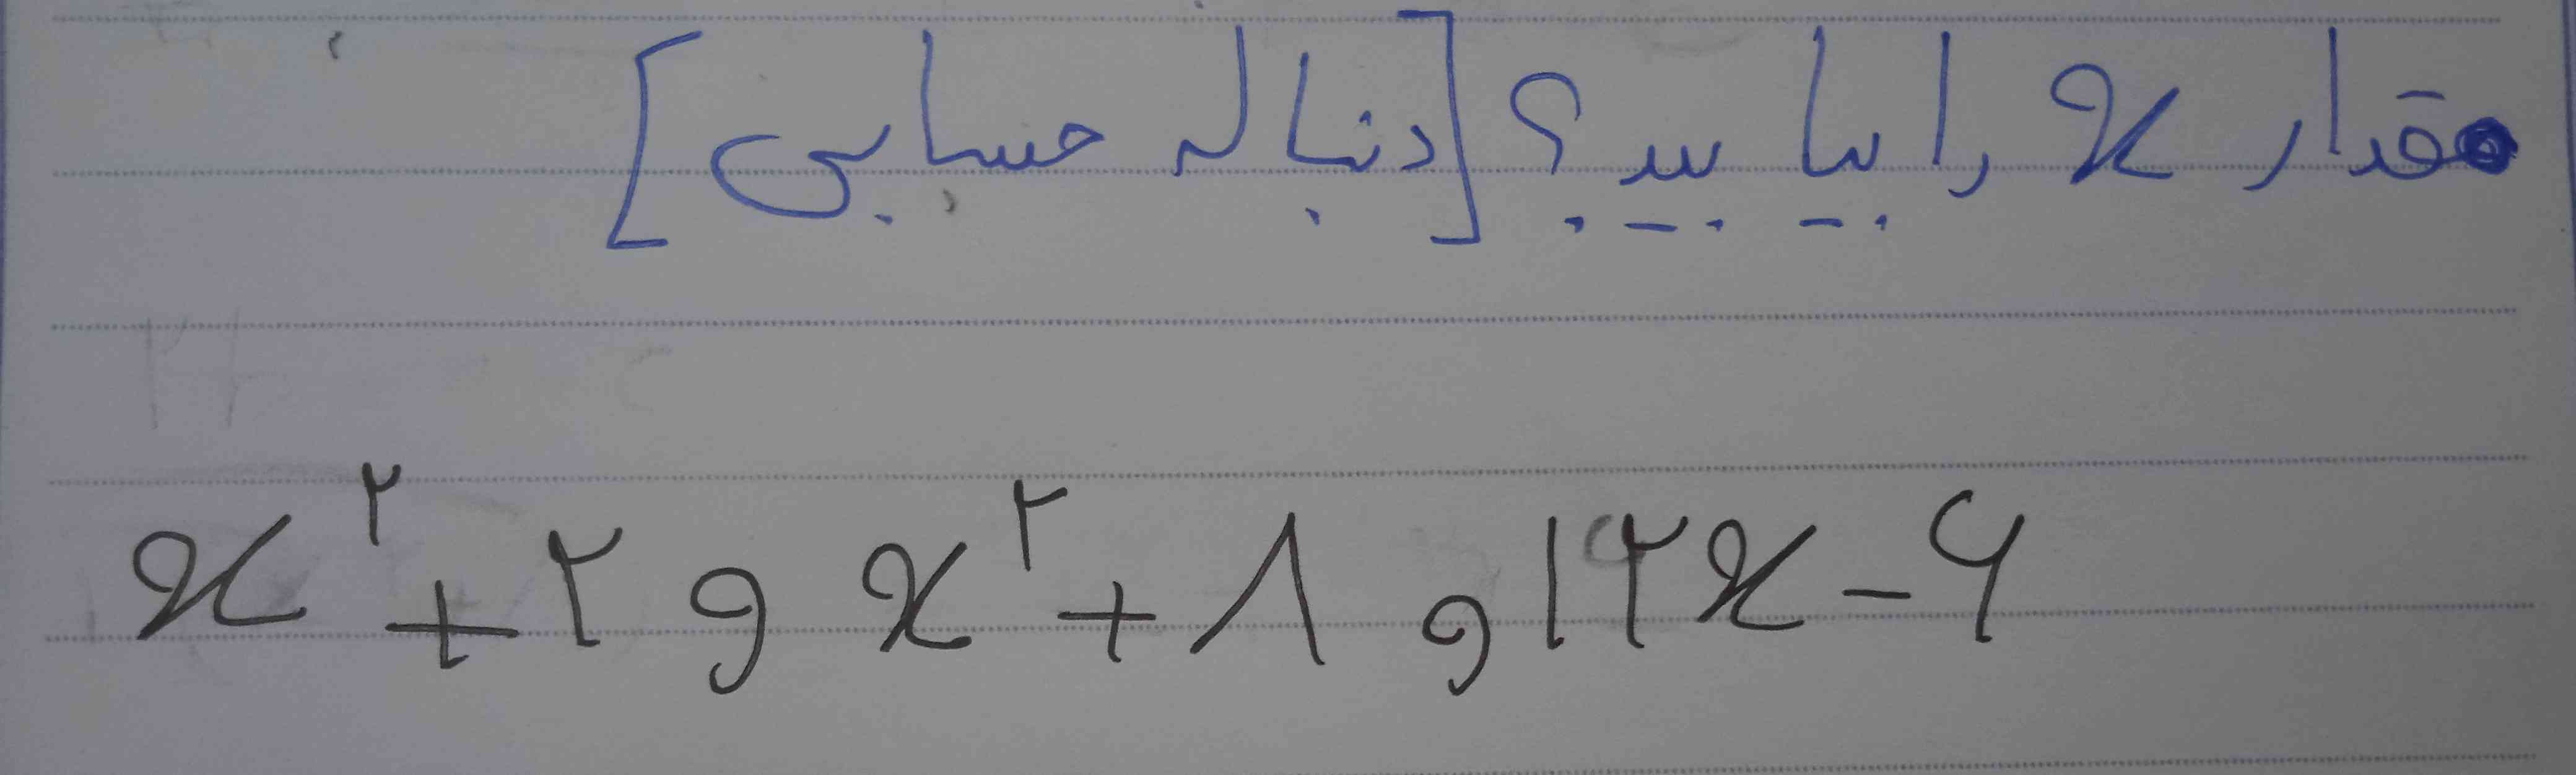 مقدار x را بیابید؟ [دنباله حسابی]
x^۲ + ۲ و x^۲ + ۸ و ۱۲x - ۶